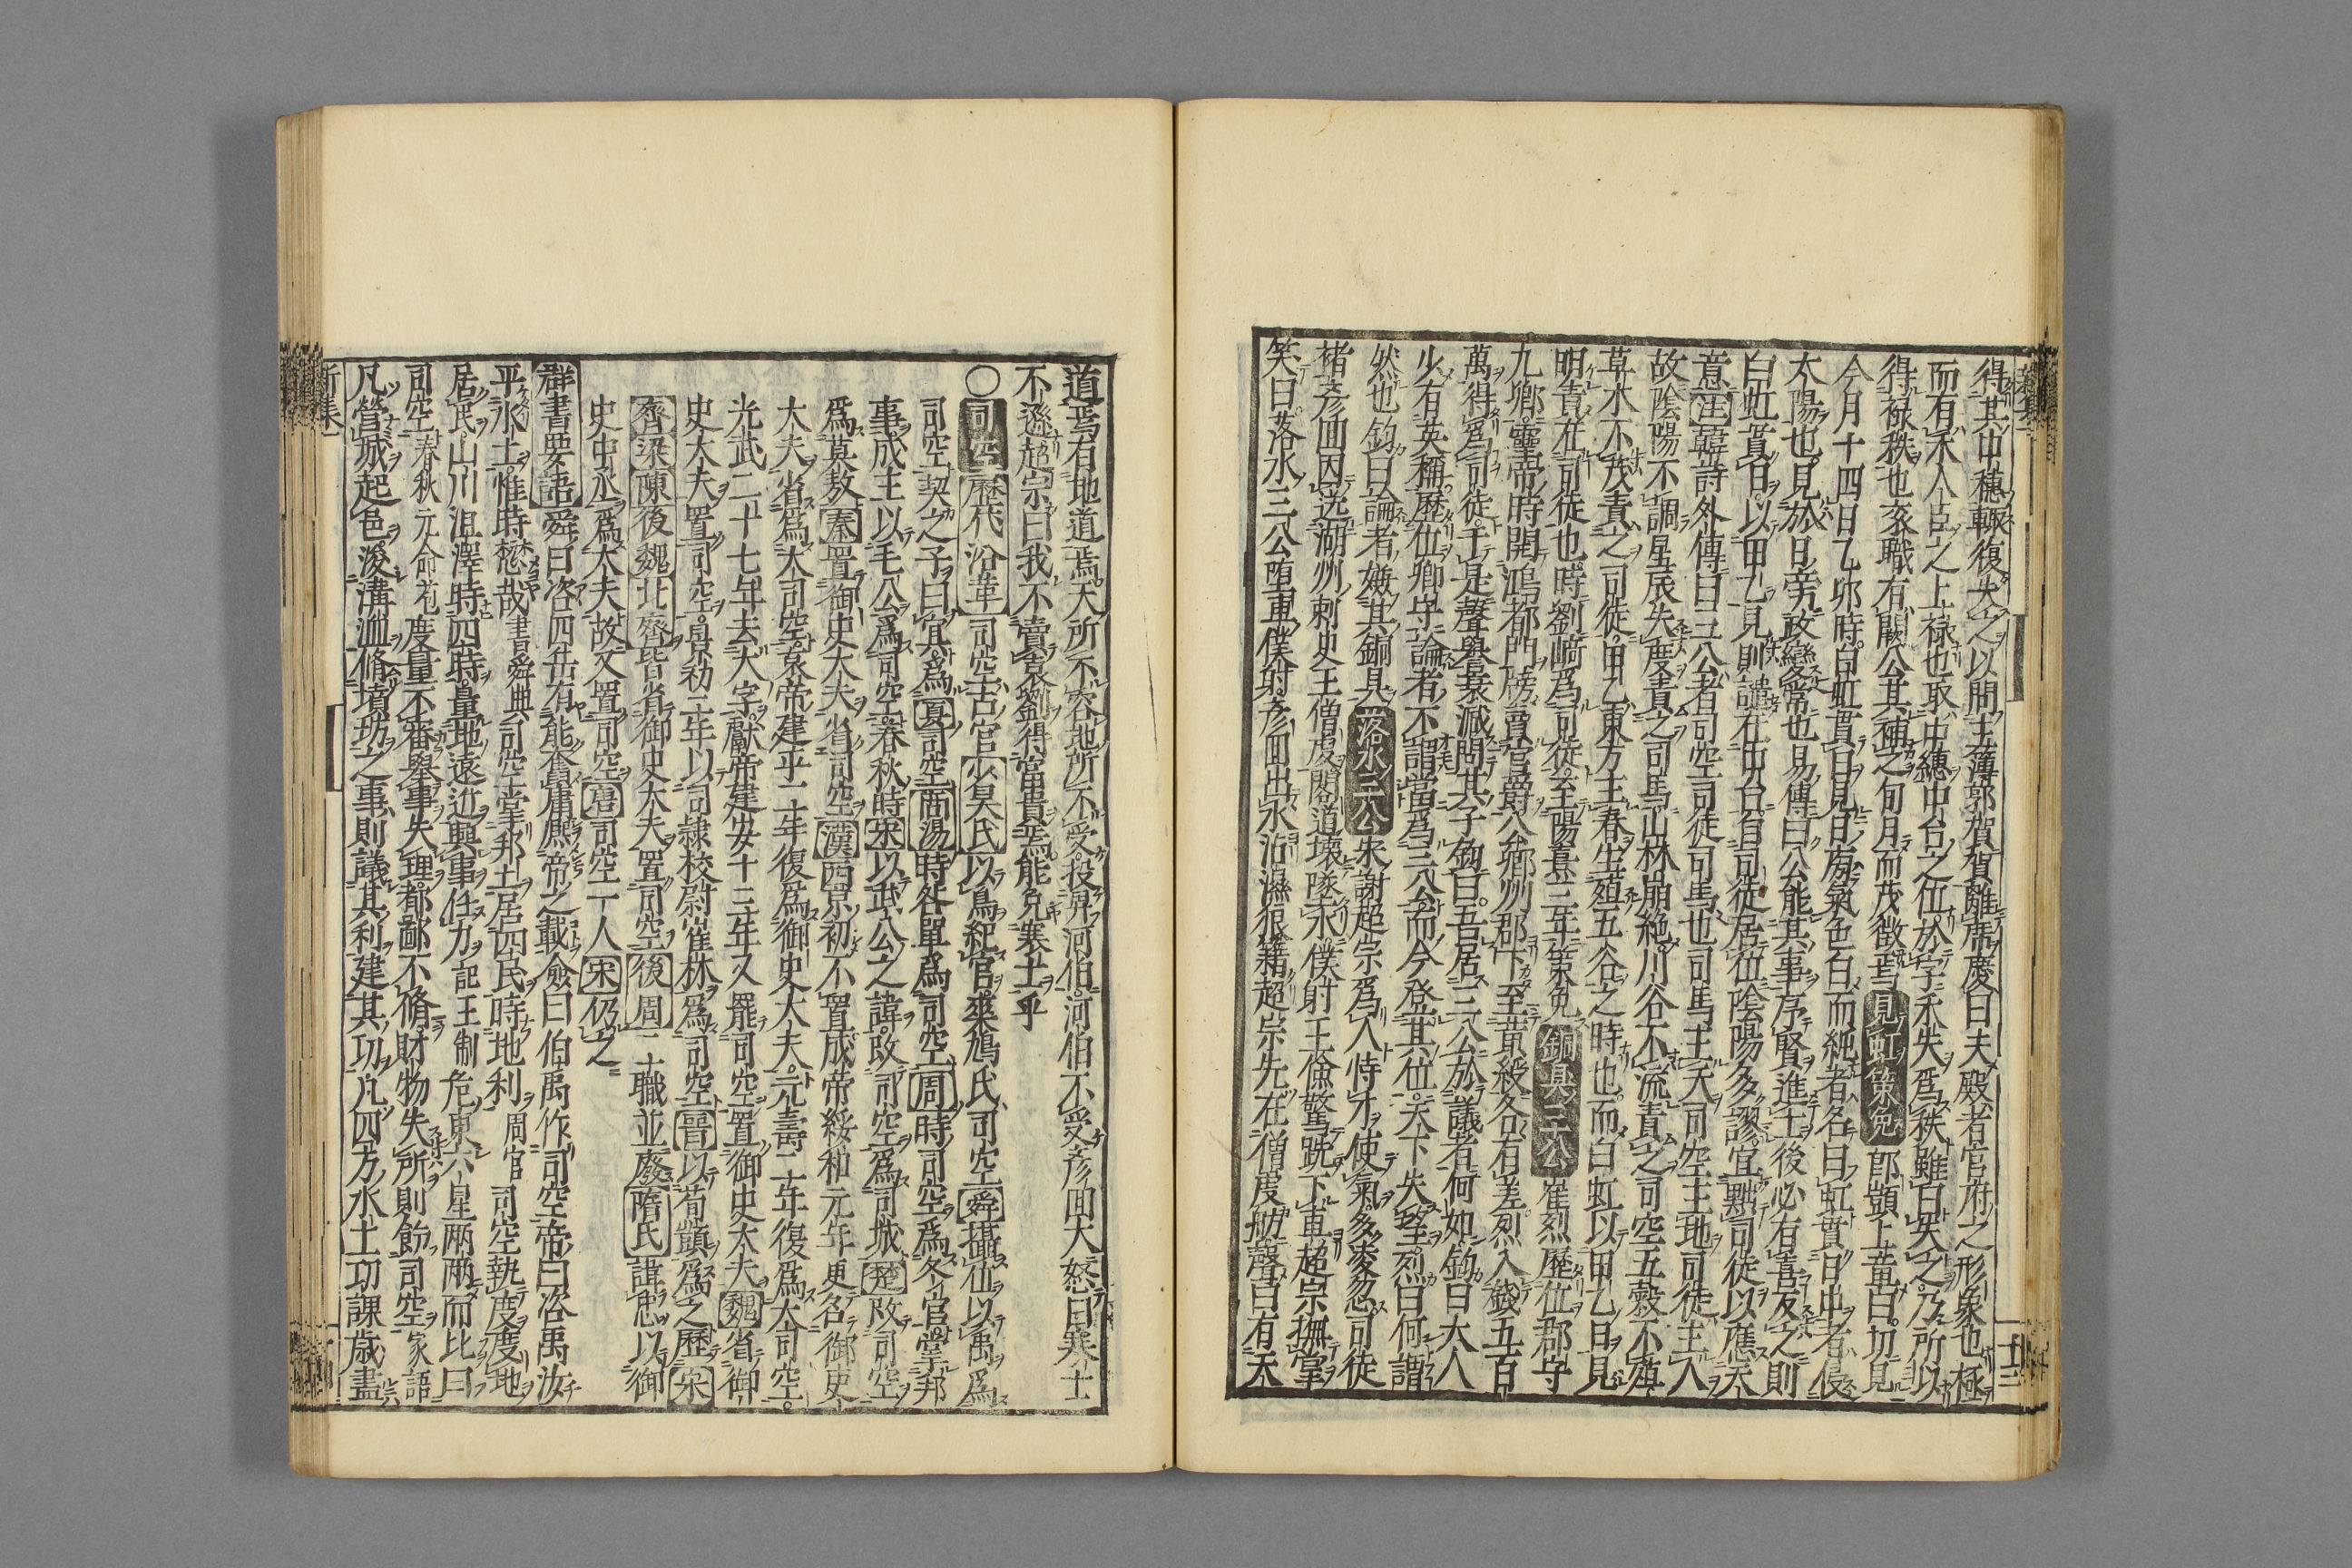 得其中穗輙復失之以問主薄郭賀賀離席慶曰夫殿者官府之形象也極
而有禾人臣之上祿也取中穗中台之位於字禾失爲秩雖曰失之乃所以
得祿秩也袞職有闕公其補之旬月而茂徵焉見虹策免郎顗上章曰切見
今月十四日乙卯時白虹貫日見日旁氣色白而純者名曰虹貫日中者侵
太陽也見於日旁政變常也易傳曰公能其事序賢進士後必有喜反之則
白虹貫日以甲乙見則譴在中台自司徒居位陰陽多謬宜黜司徒以應天
意注韓詩外傳曰三公者司空司徒司馬也司馬主天司空主地司徒主人
故陰陽不調星辰失度責之司馬山林崩絶川谷不流責之司空五穀不殖
草木不茂責之司徒甲乙東方主春生殖五谷之時也而白虹以甲乙日見
明責在司徒也時劉崎爲司徒至陽嘉三年策免銅臭三公崔烈歷位郡守
九鄉靈帝時開鴻都門膀賣官爵公鄉州郡下至黃綬各有差烈入錢五百
萬得爲司徒于是聲譽衰減問其子鈞曰吾居三公於議者何如鈞曰大人
少有英稱歷位卿守論者不謂當爲三公而今登其位天下失望烈曰何謂
然也鈞曰論者嫌其銅臭落水三公宋謝超宗爲人恃才使氣多凌忽司徒
褚彥回因送湖州刺史王僧虔閣道壞墜水僕射王儉驚跣下車超宗撫掌
笑曰落水三公墮車僕射彥回出水沾濕狼藉超宗先在僧虔舫聲曰有天
道焉有地道焉天所不容地所不受投畀河伯河伯不受彥回大怒曰寒士
不遜超宗曰我不賣袁劉得富貴焉能免寒士乎
○司空歷代沿革司空古官少昊氏以鳥紀官來鳩氏司空舜攝位以禹爲
司空契之子曰冥爲夏司空西湯時咎單爲司空周時司空爲冬官掌邦
事成王以毛公爲司空春秋時宋以武公之諱改司空爲司城楚改司空
爲莫敖秦置御史大夫省司空漢西京初不置成帝綏和元年更名御史
大夫省爲大司空哀帝建平二年復爲御史大夫元壽二年復爲大司空
光武二十七年去大字獻帝建安十三年又罷司空置御史大夫魏省御
史大夫置司空景初二年以司隷校尉崔林爲司空晉以荀顗爲之歷宋
齊梁陳後魏北齊皆省御史大夫置司空後周二職並廢隋氏諱忠以御
史中丞爲大夫故又置司空唐司空一人宋仍之
群書要語舜曰咨四岳有能奮庸熈帝之載僉曰伯禹作司空帝曰咨禹汝
平水土惟時懋哉書舜典司空掌邦土居四民時地利周官司空執度度地
居民山川沮澤時四時量地遠近興事任力記王制危東六星兩兩而比曰
司空春秋元命苞度量不審舉事失理都鄙不脩財物失所則飭司空家語
凡營城起邑浚溝洫脩墳坊之事則議其利建其功凡四方水土功課歲盡